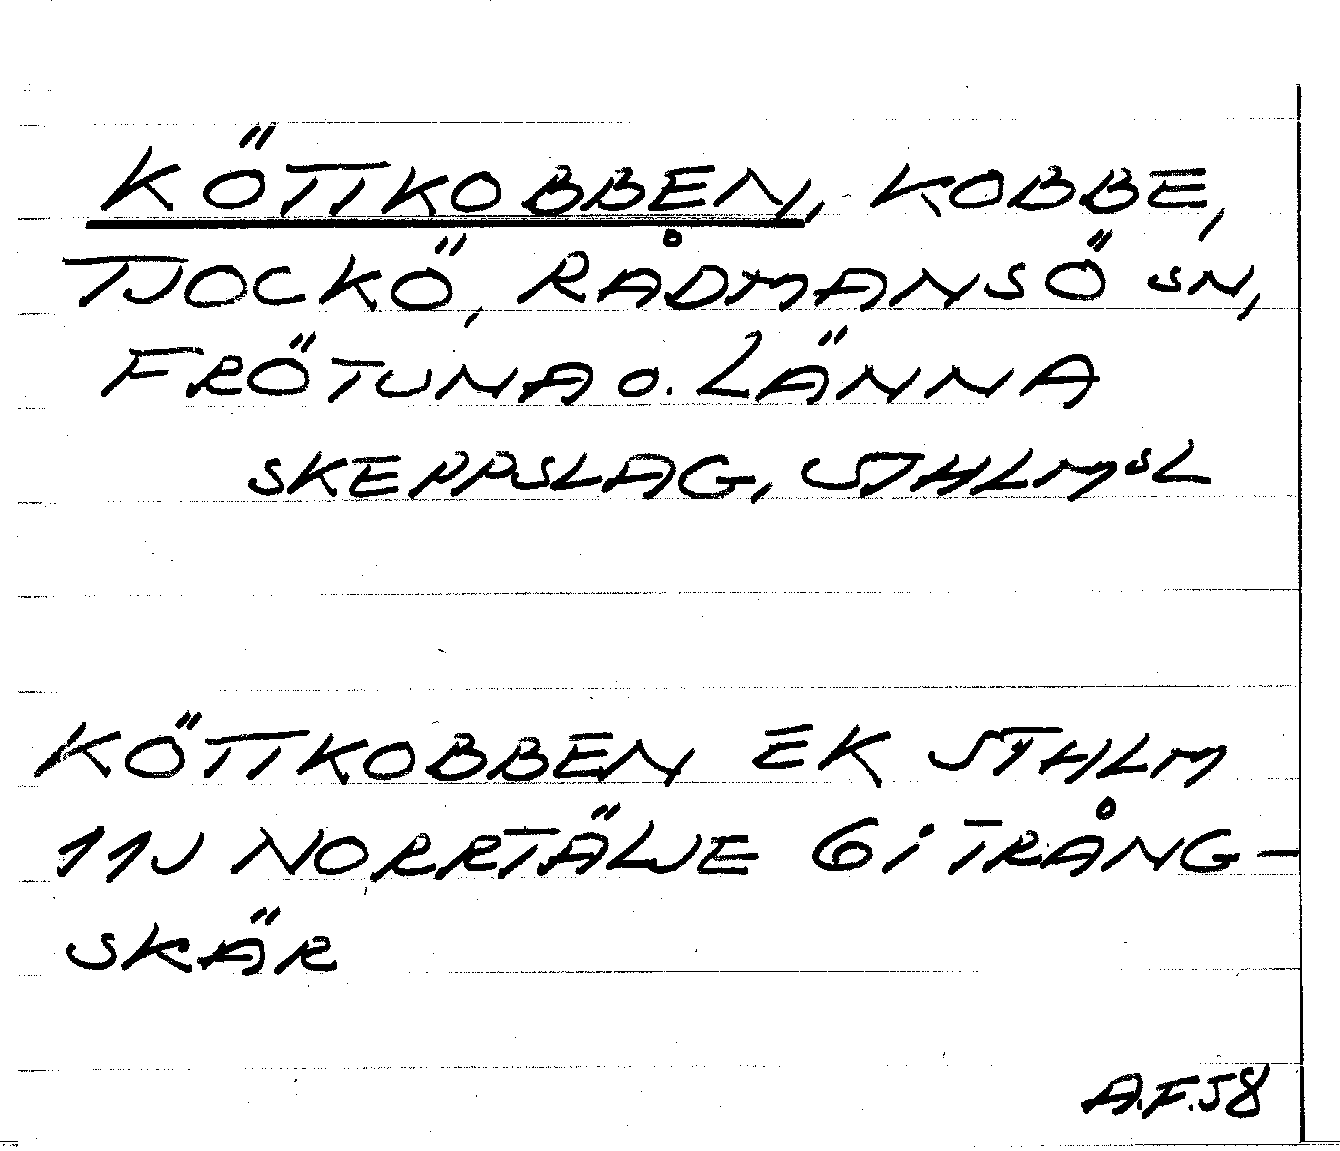 KÖTTKOBBEN, KOBBE,
TJOCKÖ, RÅDMANSÖ SN,
FRÖTUNA O. LÄNNA
SKEPPSLAG, STHLMSL
KÖTTKOBBEN EK STHLM
11J NORRTÄLJE 6i TRÅNG-
SKÄR
A.F.58